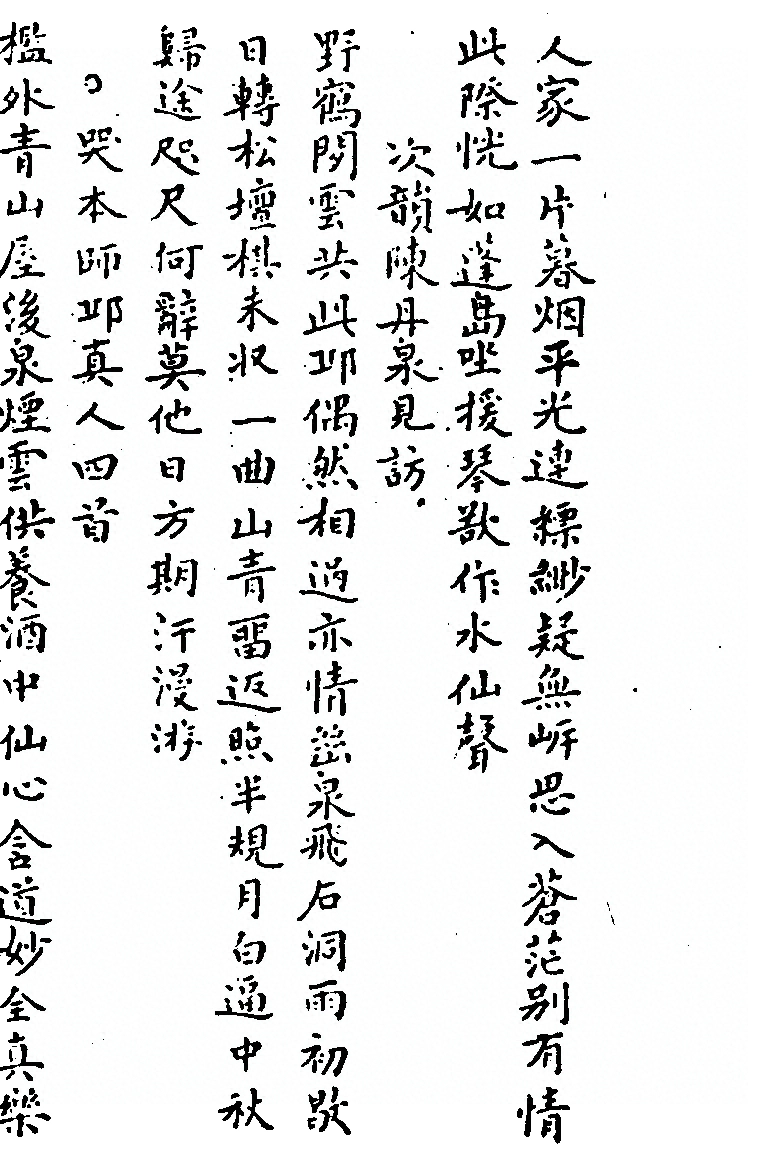 人家一片暮烟平光連縹緲疑無岍思入蒼茫别有情
此際恍如蓬島坐援琴猷作水仙聲
次韻陳丹泉見訪
野鶴閒雲共此邱偶然相過亦情𠃔泉飛石洞雨初歇
日轉松壇棋未収一曲山青畱返照半規月白逼中秋
歸途咫尺何辭莫他日方期汗漫游
哭本師邱真人四首
檻外青山屋後泉煙雲供養酒中仙心含道妙全真樂